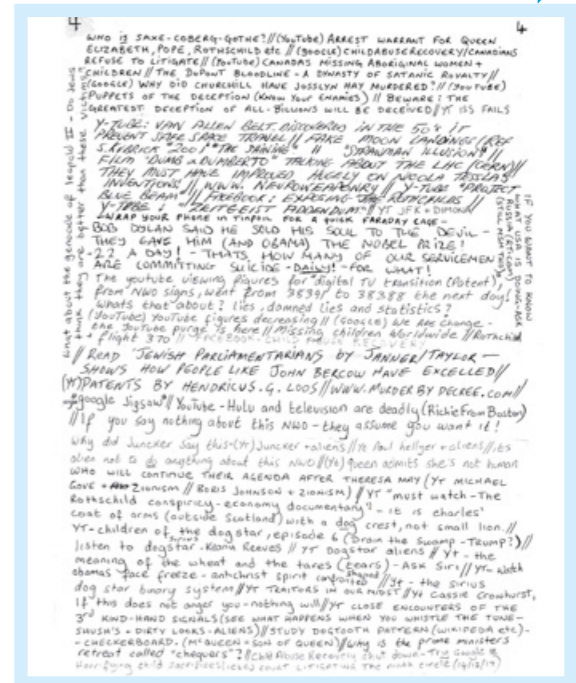 4
4
WHO IS SAXE-COBERG-GOTHE?//(YouTube) ARREST WARRANT FOR QUEEN
ELIZABETH, POPE, ROTHSCHILD etc //(google) CHILDABUSERECOVERY/CANADIANS
REFUSE TO LITIGATE//(YouTube) CANADAS MISSING ABORIGINAL WOMEN +
CHILDREN // THE DUPONT BLOODLINE - A DYNASTY OF SATANIC ROYALTY//
(GOOGLE) WHY DID CHURCHILL HAVE JOSSLYN HAY MURDERED?//(YOUTUBE)
PUPPETS OF THE DECEPTION (KNOW YOUR ENEMIES) // BEWARE: THE
GREATEST DECEPTION OF ALL-BILLIONS WILL BE DECEIVED//YT ISS FAILS
Y-TUBE: VAN ALLEN BELT. DISCOVERED IN THE 50's IT
PREVENT SAFE SPACE TRAVEL // FAKE MOON LANDINGS (REF
S. KUBRICK "2001" "THE SHINING" // STRAWMAN ILLUSION"//
FILM "DUMB & DUMBERTO" TALKING ABOUT THE LHC/CERN//
THEY MUST HAVE IMPROVED HUGELY ON NICOLA TESSLAS
INVENTIONS // WWW. NEUROWEAPONRY // Y-TUBE "PROJECT
BLUE BEAM" // FACEBOOK: EXPOSING THE ROTHCHILDS //
Y-TUBE: "ZEITGEIST ADDENDUM"// YT JFK + DIMONA
-WRAP YOUR PHONE IN TINFOIL FOR A QUICK FARADAY CAGE-
BOB DYLAN SAID HE SOLD HIS SOUL TO THE DEVIL-
THEY GAVE HIM (AND OBAMA) THE NOBEL PRIZE!
-22 A DAY! - THATS HOW MANY OF OUR SERVICEMEN
ARE COMMITTING SUICIDE-DAILY!-FOR WHAT!
The youtube viewing figures for "digital TV transition (Patent),
from NWO signs, went from 38391 to 38388 the next day!
Whats that about? lies, damned lies and statistics?
(YouTube) YouTube figures decreasing//(GOOGLE) We Are change-
the YouTube purge is here // Missing children Worldwide // Rothschild
+ flight 370 // FACEBOOK-CHILD ABUSE RECOVERY
// READ "JEWISH PARLIAMENTARIANS BY JANNER/TAYLOR-
SHOWS HOW PEOPLE LIKE JOHN BERCOW HAVE EXCELLED//
(YT) PATENTS BY HENDRICUS.G.LOOS//WWW.MURDER BY DECREE.com//
google Jigsaw // YouTube-Hulu and television are deadly (RichieFrom Boston)
// If you say nothing about this NWO-they assume you want it!
Why did Juncker say this-(yt) Juncker +aliens // Yt Paul hellyer +aliens // its
alien not to do anything about this NWO // (Yt) Queen admits she's not human
WHO WILL CONTINUE THEIR AGENDA AFTER THERESA MAY (YT MICHAEL
GOVE + ZIONISM // BORIS JOHNSON + ZIONISM) // YT "must watch-The
Rothschild conspiricy-economy documentary"- it is charles'
coat of arms (outside Scotland) with a dog crest, not small lion.//
YT-children of the dog star, episode 6 (Drain the swamp-TRUMP?)//
sirius
listen to dogstar-Keanu Reeves // YT Dogstar aliens // Yt - the
meaning of the wheat and the tares (tears)-ASK Siri // YT-watch
obamas face freeze-antichrist spirit confronted // Yt - the sirius
dog star binary system // YT TRAITORS IN OUR MIDST // Yt Cassie Crowhurst,
If this does not anger you-nothing will // YT CLOSE ENCOUNTERS OF THE
3rd KIND-HAND SIGNALS (SEE WHAT HAPPENS WHEN YOU WHISTLE THE TUNE-
+ DIRTY LOOKS-ALIENS)//STUDY DOGTOOTH PATTERN (WIKIPEDIA etc)-
-CHECKERBOARD. (McQUEEN=SON OF QUEEN) // Why is the prime ministers
retreat called "chequers"? // Child Abuse Recovery shut down-Try Google it
Horrifying child sacrifices
What about the genocide of leopold II - Do Jews
think they are better than these victims?
IF YOU WANT TO KNOW
WHAT USA IS DOING-ASK
RUSSIA (RT.com)